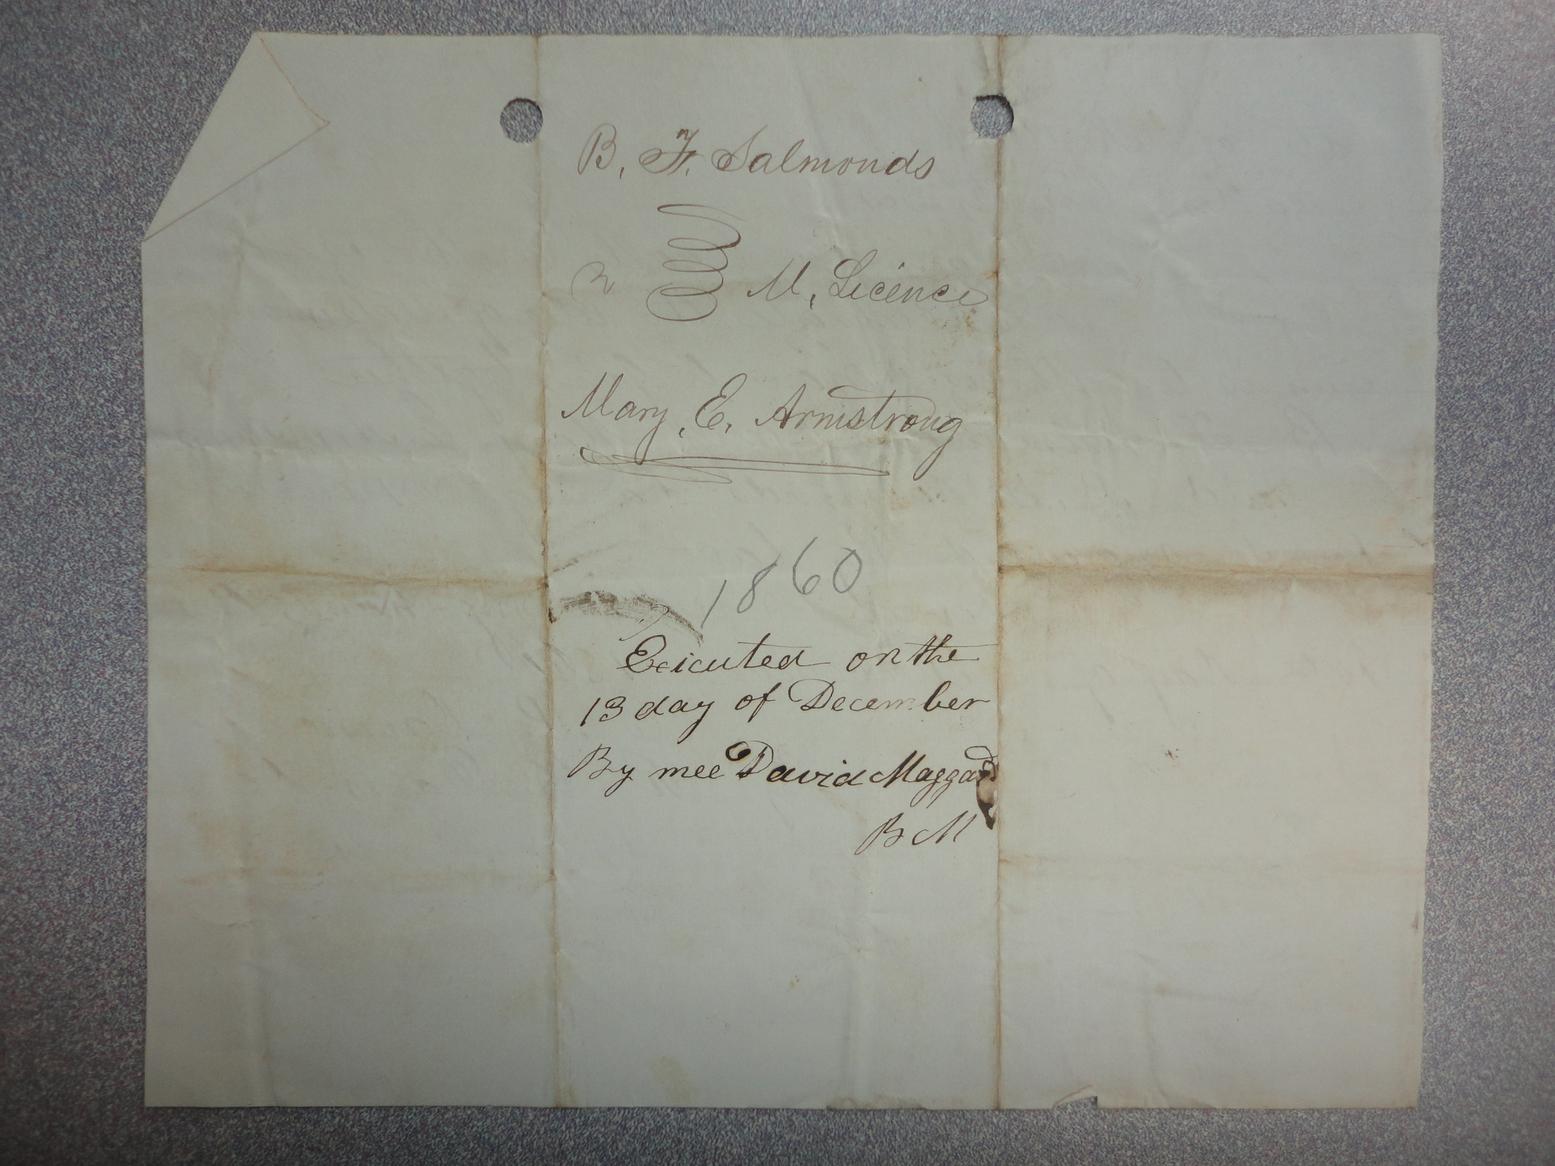 B. F. Salmonds
M, Licence
Mary, E, Armstrong
1860
Exicuted on the
13 day of December
By mee David Maggard
B M